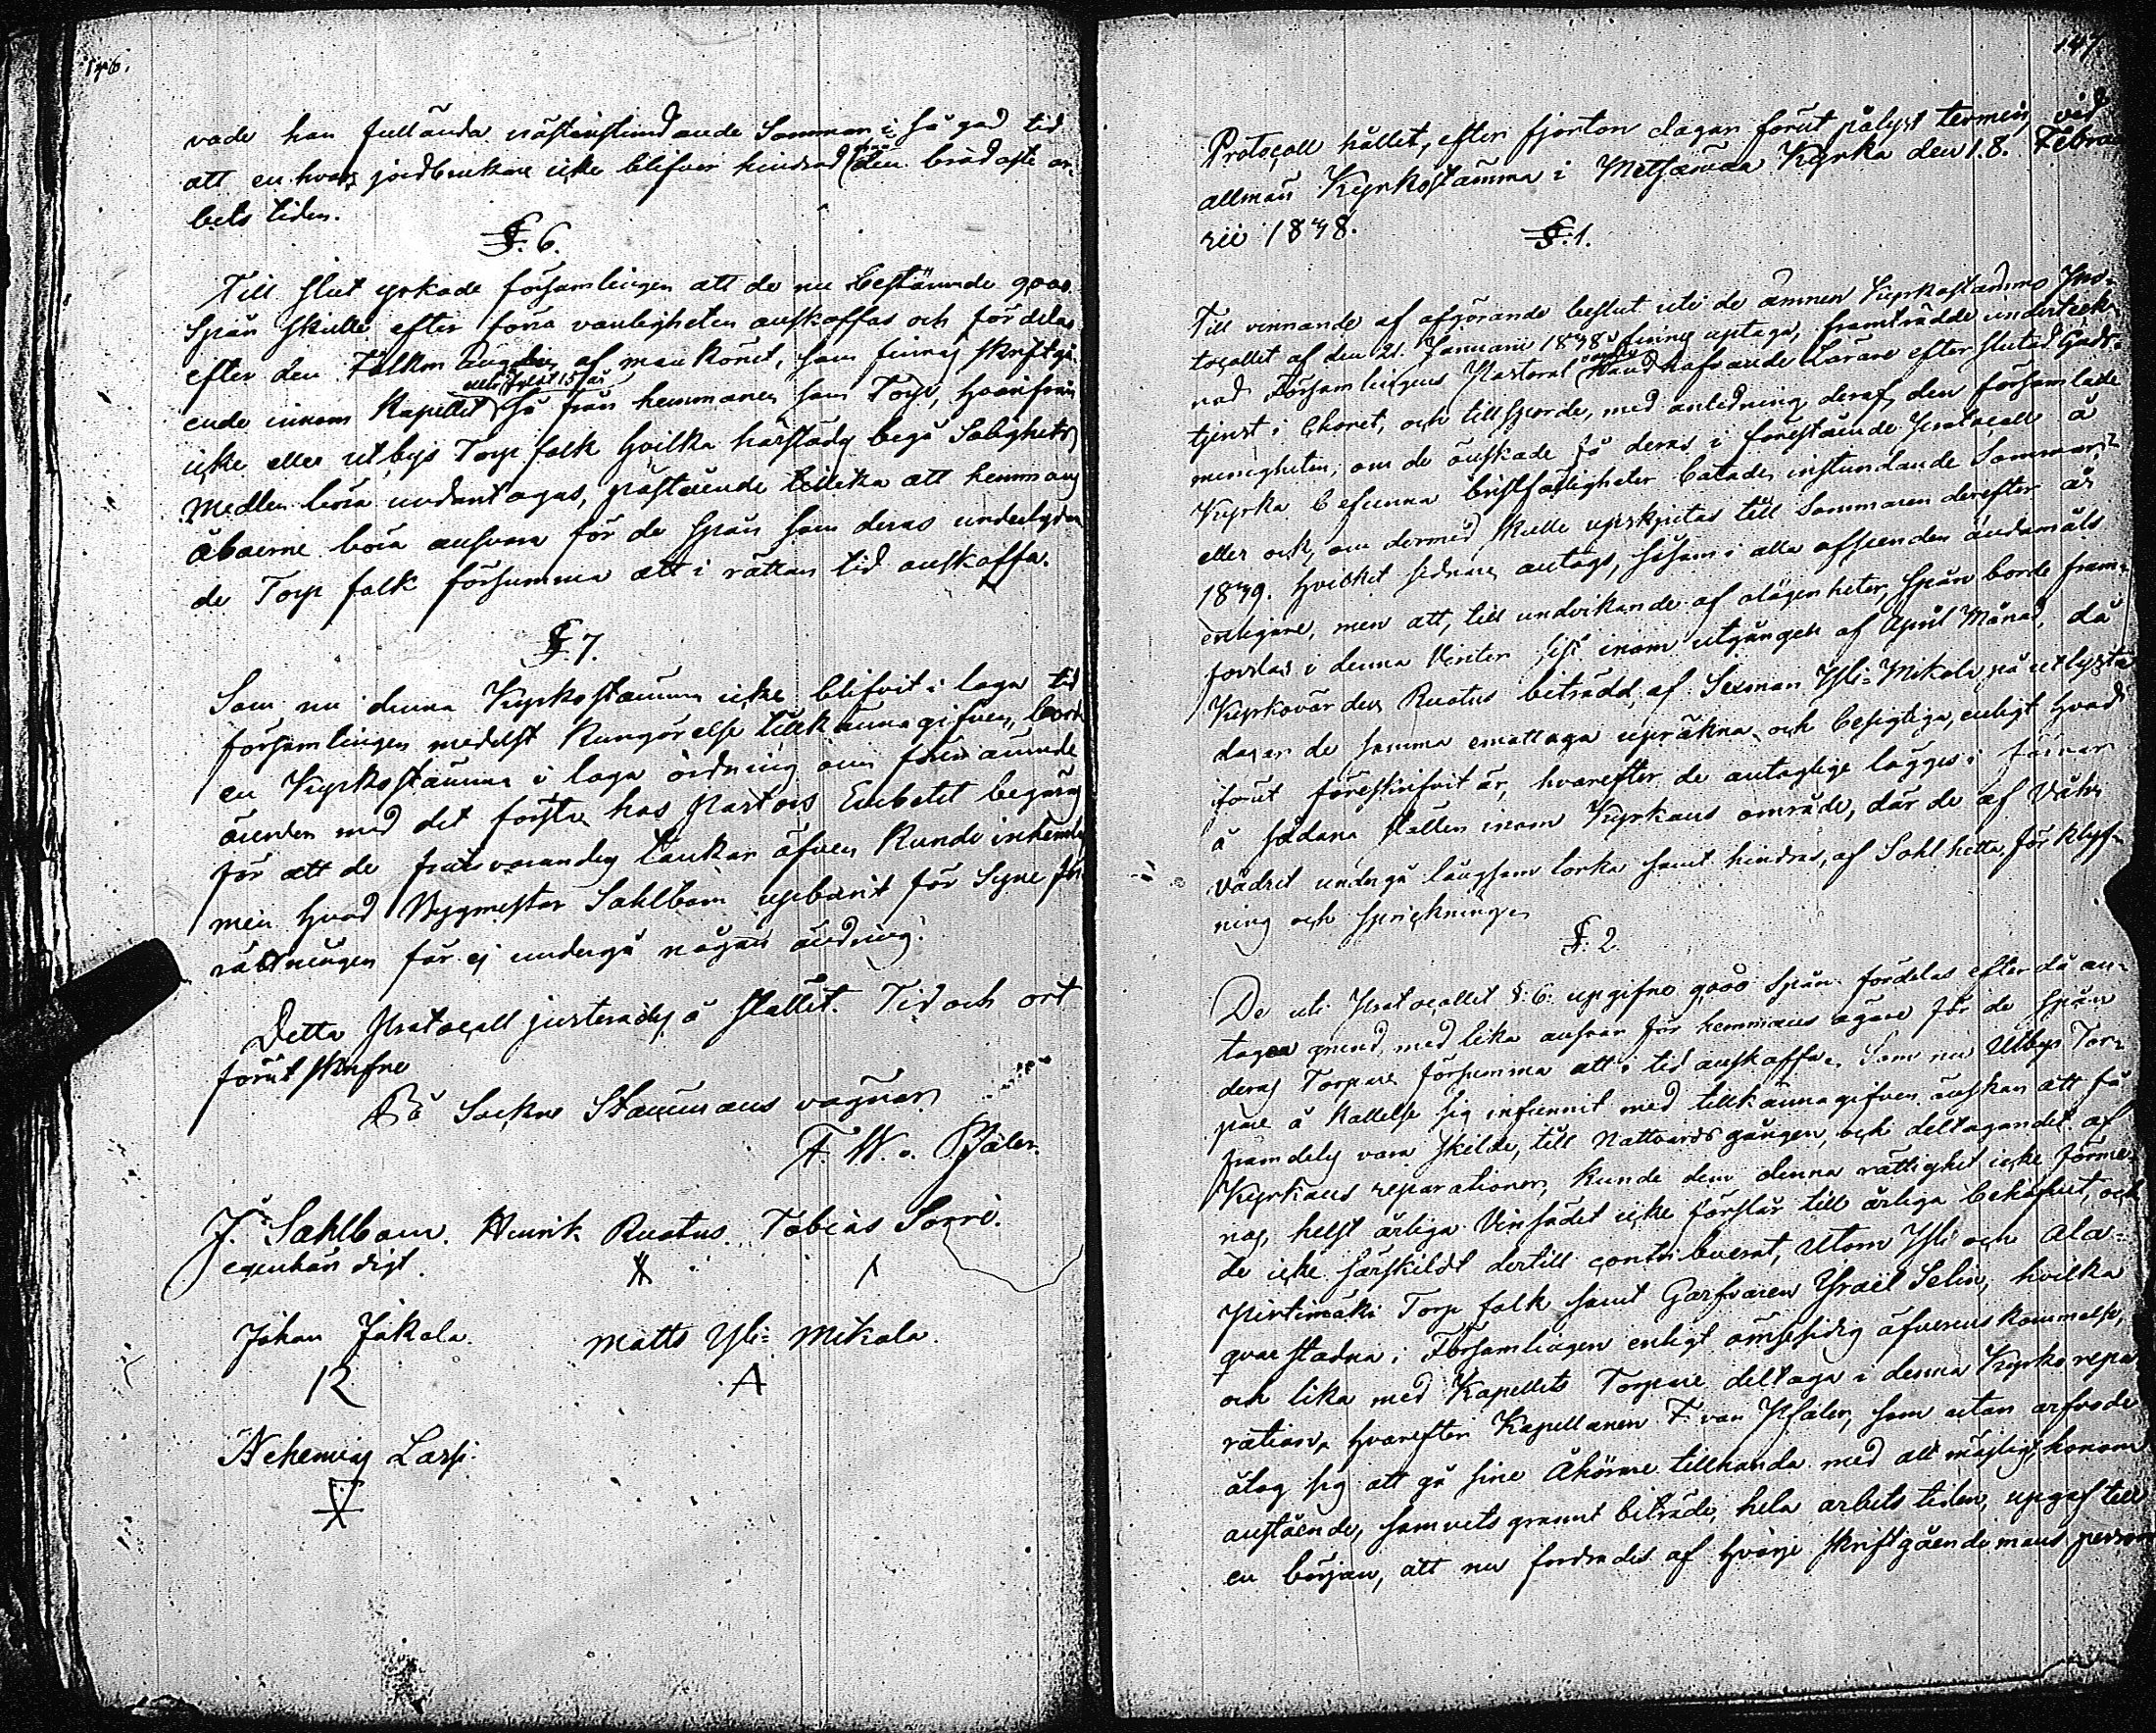 146.
vade han fullända nästinstundande Sommar i så god tid
att en hvar jordbrukare icke blifver hindrad den brådaste ar-
bets tiden.
§. 6.
Till slut yrkade församlingen att de nu bestämde 9000
Spån skulle efter förra vanligheten anskaffas och fördelas
efter den Folkm ängden af mankönet, som finnas skriftgå-
eller fyllt 15 år
ende innom Kapellet så från hemmanen som Torp, hvarifrån
icke eller utbys Torp folk hvilka härstädes begå Salighets
Medlen böra undantagas, påstående tillika att hemmans
åboerne böra ansvara för de Spån som deras underlydan
de Torp folk försumma att i rättan tid anskaffa.
§. 7.
Som nu denna Kyrkostämma icke blifvit i laga tid
församlingen medelst Kungörelse tillkännagifven, borde
en Kyrkostämma i laga ordning om förenämnde
ärenden med det första hos Pastors Embetet begäras
för att de frånvarandes tankar äfven Kunde inhemtas
men hvad Byggmestar Sahlbom upburit för Syne för
rättningen får ej undergå någon ändring.
Detta Protocoll justerades å stället. Tid och ort
förut skrefne
På Sockne Stämmans vägnar
F. W. v. Pfaler.
J. Sahlbom. Henrik Ruotus. Tobias Sorri.
egenhändigt.
Johan Jakola. Matts Yli-Mikola.
Nehemias Lassi.
147
Protocoll hållet, efter fjorton dagar förut pålyst termin, vid
allmän Kyrkostämma i Metsämaa Kyrka den 18. Februa
rii 1838.
§. 1.
Till vinnande af afgörande beslut uti de ämnen Kyrkostämmo Pro-
tocollet af den 21. Januarii 1838 finnes uptaga, framträdde undertek-
nad Församlingens Pastoral vård handhafvande Lärare efter slutad Guds-
tjenst i Choret, och tillsporde, med anledning deraf, den församlade
menigheten, om de önskade få deras i förestående Protocoll å
Kyrka befunna bristfälligheter botade, instundande Sommar,
eller ock, om dermed skulle upskjutas till Sommaren derefter år
1839. Hvilket sednare antogs, såsom i alla afseenden ändamåls
enligare, men att, till undvikande af olägenheter, Spån borde fram-
forslas i denna Vinter sist inom utgången af April Månad, då
Kyrkovärden Ruotus biträdd af Sexman Yli-Mikola, på utlysta
dagar de samma emottaga upräkna och besigtiga, enligt hvad
förut föreskrifvit är, hvarefter de antaglige läggas i
å sådana ställen inom Kyrkans område, där de af Våhr
vädret undergå långsam torka samt hindras, af Sohl hetta, för klyf-
ning och sprickningar
§. 2
De uti Protocollet §. 6. upgifne 9000 Spån fördelas efter då an-
tagen grund, med lika ansvar för hemmans ägare för de Spån
deras Torpare försumma att i tid anskaffa. Som nu Utbys Tor-
pare å Kallelse sig infunnit med tillkännagifven önskan att få
framdeles vara skilde, till Nattvards gången, och deltagandet af
Kyrkans reparationer, Kunde dem denna rättighet icke förme-
nas, helst årliga Vinsädet icke förslår till årliga behofvet, och
de icke särskildt dertill contribuerat, Utom Yli och Ala-
Pirtimäki Torp folk samt Garfvaren Israel Selin, hvilka
qvarstadna i Församlingen enligt ömsesidig öfverenskommelse,
och lika med Kapellets Torpare deltaga i denna Kyrko repa
ration, hvarefter Kapellanen F. von Pfaler, som utan arfvode
åtog sig att gå sine Åhörare tillhanda med all möjligt, honom
anstående, samvets grannt biträde, hela arbets tiden, upgaf till
en början, att nu fordrades af hvarje skriftgående mans person